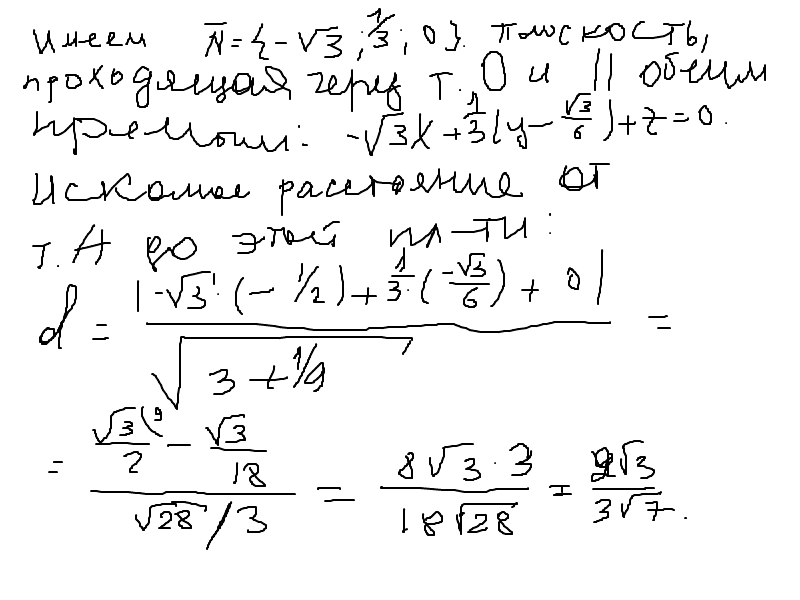 имеем N̅={-√3; 1/3; 0}. плоскость,
проходящая через т. O и || обеим
прямым: -√3x+1/3(y-√3/6)+z=0.
Искомое расстояние от
т. A до этой пл-ти:
d = |-√3·(-1/2)+1/3·(-√3/6)+0| / √(3+1/9) =
= (√3/2 (9 - √3/18) / (√28/3) = 8√3·3 / 18√28 = 2√3 / 3√7.